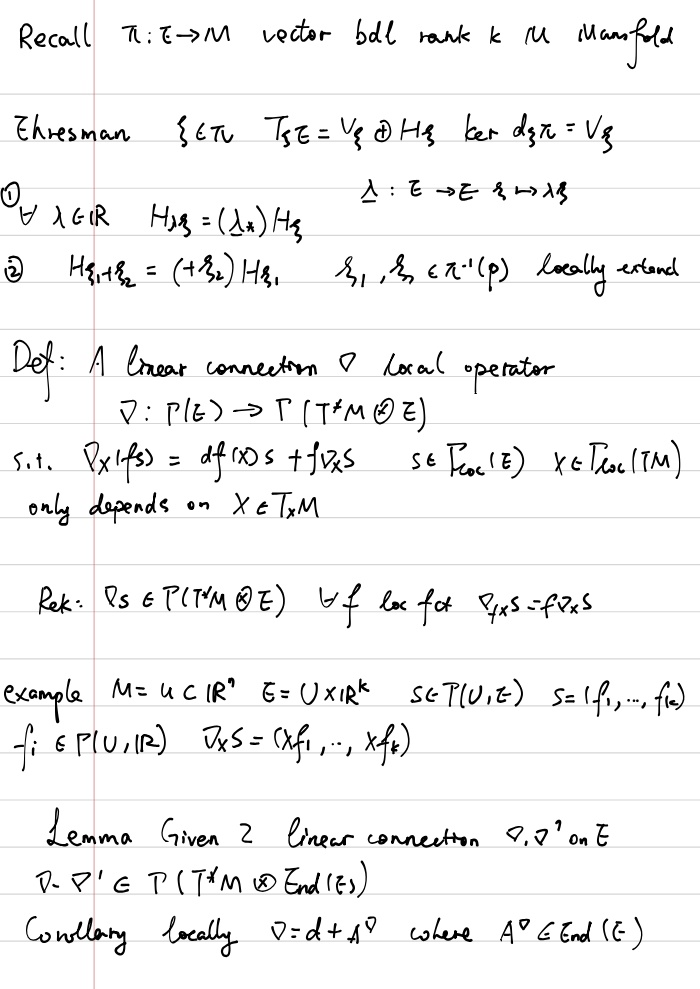 Recall π: E→M vector bdl rank k M Manifold
Ehresman ξ∈π T_ξE = V_ξ ⊕ H_ξ ker d_ξπ = V_ξ
λ̲ : E → E ξ ↦ λξ
① ∀ λ∈ℝ H_λξ = (λ̲_*) H_ξ
② H_{ξ₁+ξ₂} = (+ξ₂) H_ξ₁ ξ₁, ξ₂ ∈ π⁻¹(p) locally extend
Def: A linear connection ∇ local operator
∇: Γ(E) → Γ(T*M ⊗ E)
s.t. ∇_X(fs) = df(X)s + f∇_X s s∈ Γ_loc(E) X∈Γ_loc(TM)
only depends on X∈T_xM
Rek: ∇s ∈ Γ(T*M ⊗ E) ∀f loc fct ∇_{fX}s = f∇_X s
example M = U ⊂ ℝⁿ E = U×ℝᵏ s∈Γ(U,E) s = (f₁, ..., f_k)
f_i ∈ Γ(U, ℝ) ∇_X s = (Xf₁, .., Xf_k)
Lemma Given 2 linear connection ∇, ∇' on E
∇ - ∇' ∈ Γ(T*M ⊗ End(E))
Corollary locally ∇ = d + A^∇ where A^∇ ∈ End(E)